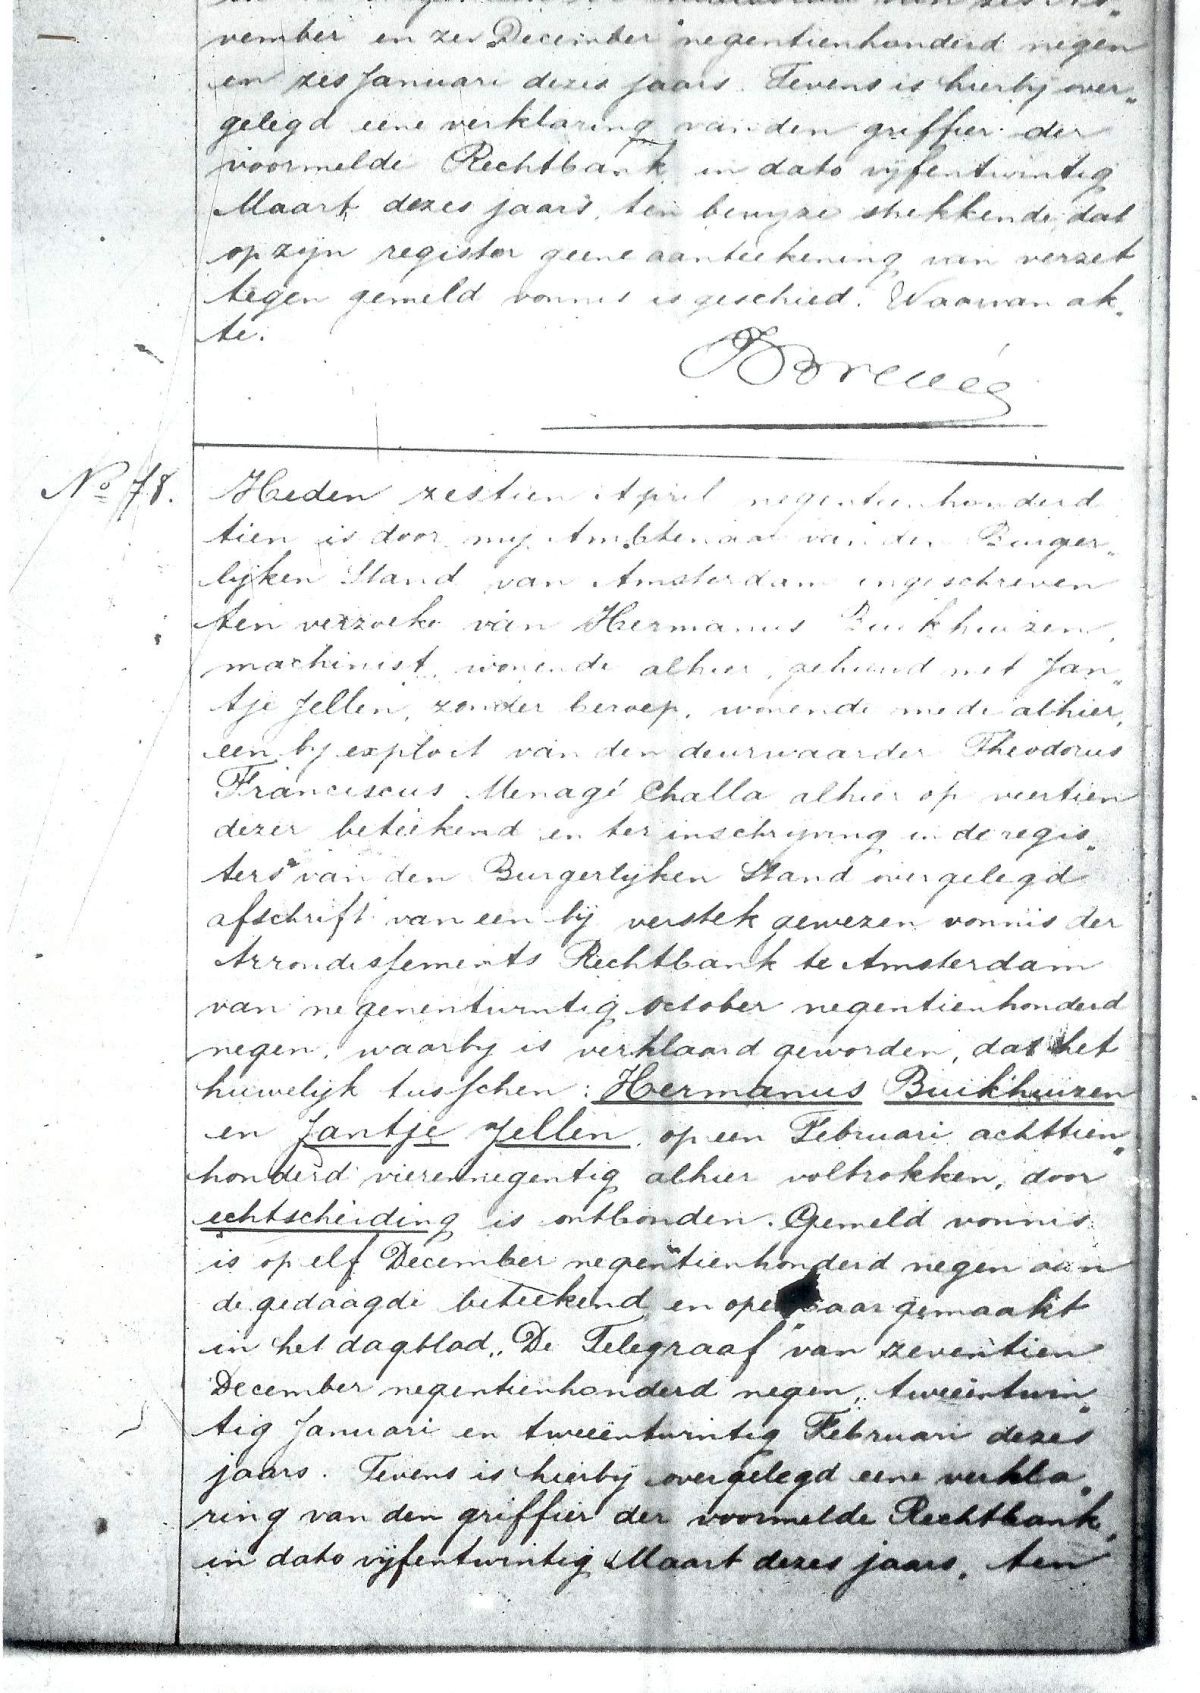 vember en zes December negentienhonderd negen
en zes Januari dezes jaars. Tevens is hierbij over„
gelegd eene verklaring van den griffier der
voormelde Rechtbank in dato vijfentwintig
Maart dezes jaars, ten bewijze strekkende, dat
op zijn register geene aanteekening van verzet
tegen gemeld vonnis is geschied. Waarvan ak„
te.
No 78.
Heden zestien April negentienhonderd
tien is door mij Ambtenaar van den Burger„
lijken Stand van Amsterdam ingeschreven
ten verzoeke van Hermanus Buikhuizen,
machinist, wonende alhier, gehuwd met Jan„
tje Jellen, zonder beroep, wonende mede alhier,
een bij exploit van den deurwaarder Theodorus
Franciscus Menagé Challa alhier op veertien
dezer beteekend en ter inschrijving in de regis„
ters van den Burgerlijken Stand overgelegd
afschrift van een bij verstek gewezen vonnis der
Arrondissements Rechtbank te Amsterdam
van negenentwintig October negentienhonderd
negen, waarbij is verklaard geworden, dat het
huwelijk tusschen: Hermanus Buikhuizen
en Jantje Jellen, op een Februari achttien„
honderd vierennegentig alhier voltrokken, door
echtscheiding is ontbonden. Gemeld vonnis
is op elf December negentienhonderd negen aan
de gedaagde beteekend en openbaar gemaakt
in het dagblad „De Telegraaf" van zeventien
December negentienhonderd negen, tweeëntwin„
tig Januari en tweeëntwintig Februari dezes
jaars. Tevens is hierbij overgelegd eene verkla„
ring van den griffier der voormelde Rechtbank,
in dato vijfentwintig Maart dezes jaars, ten